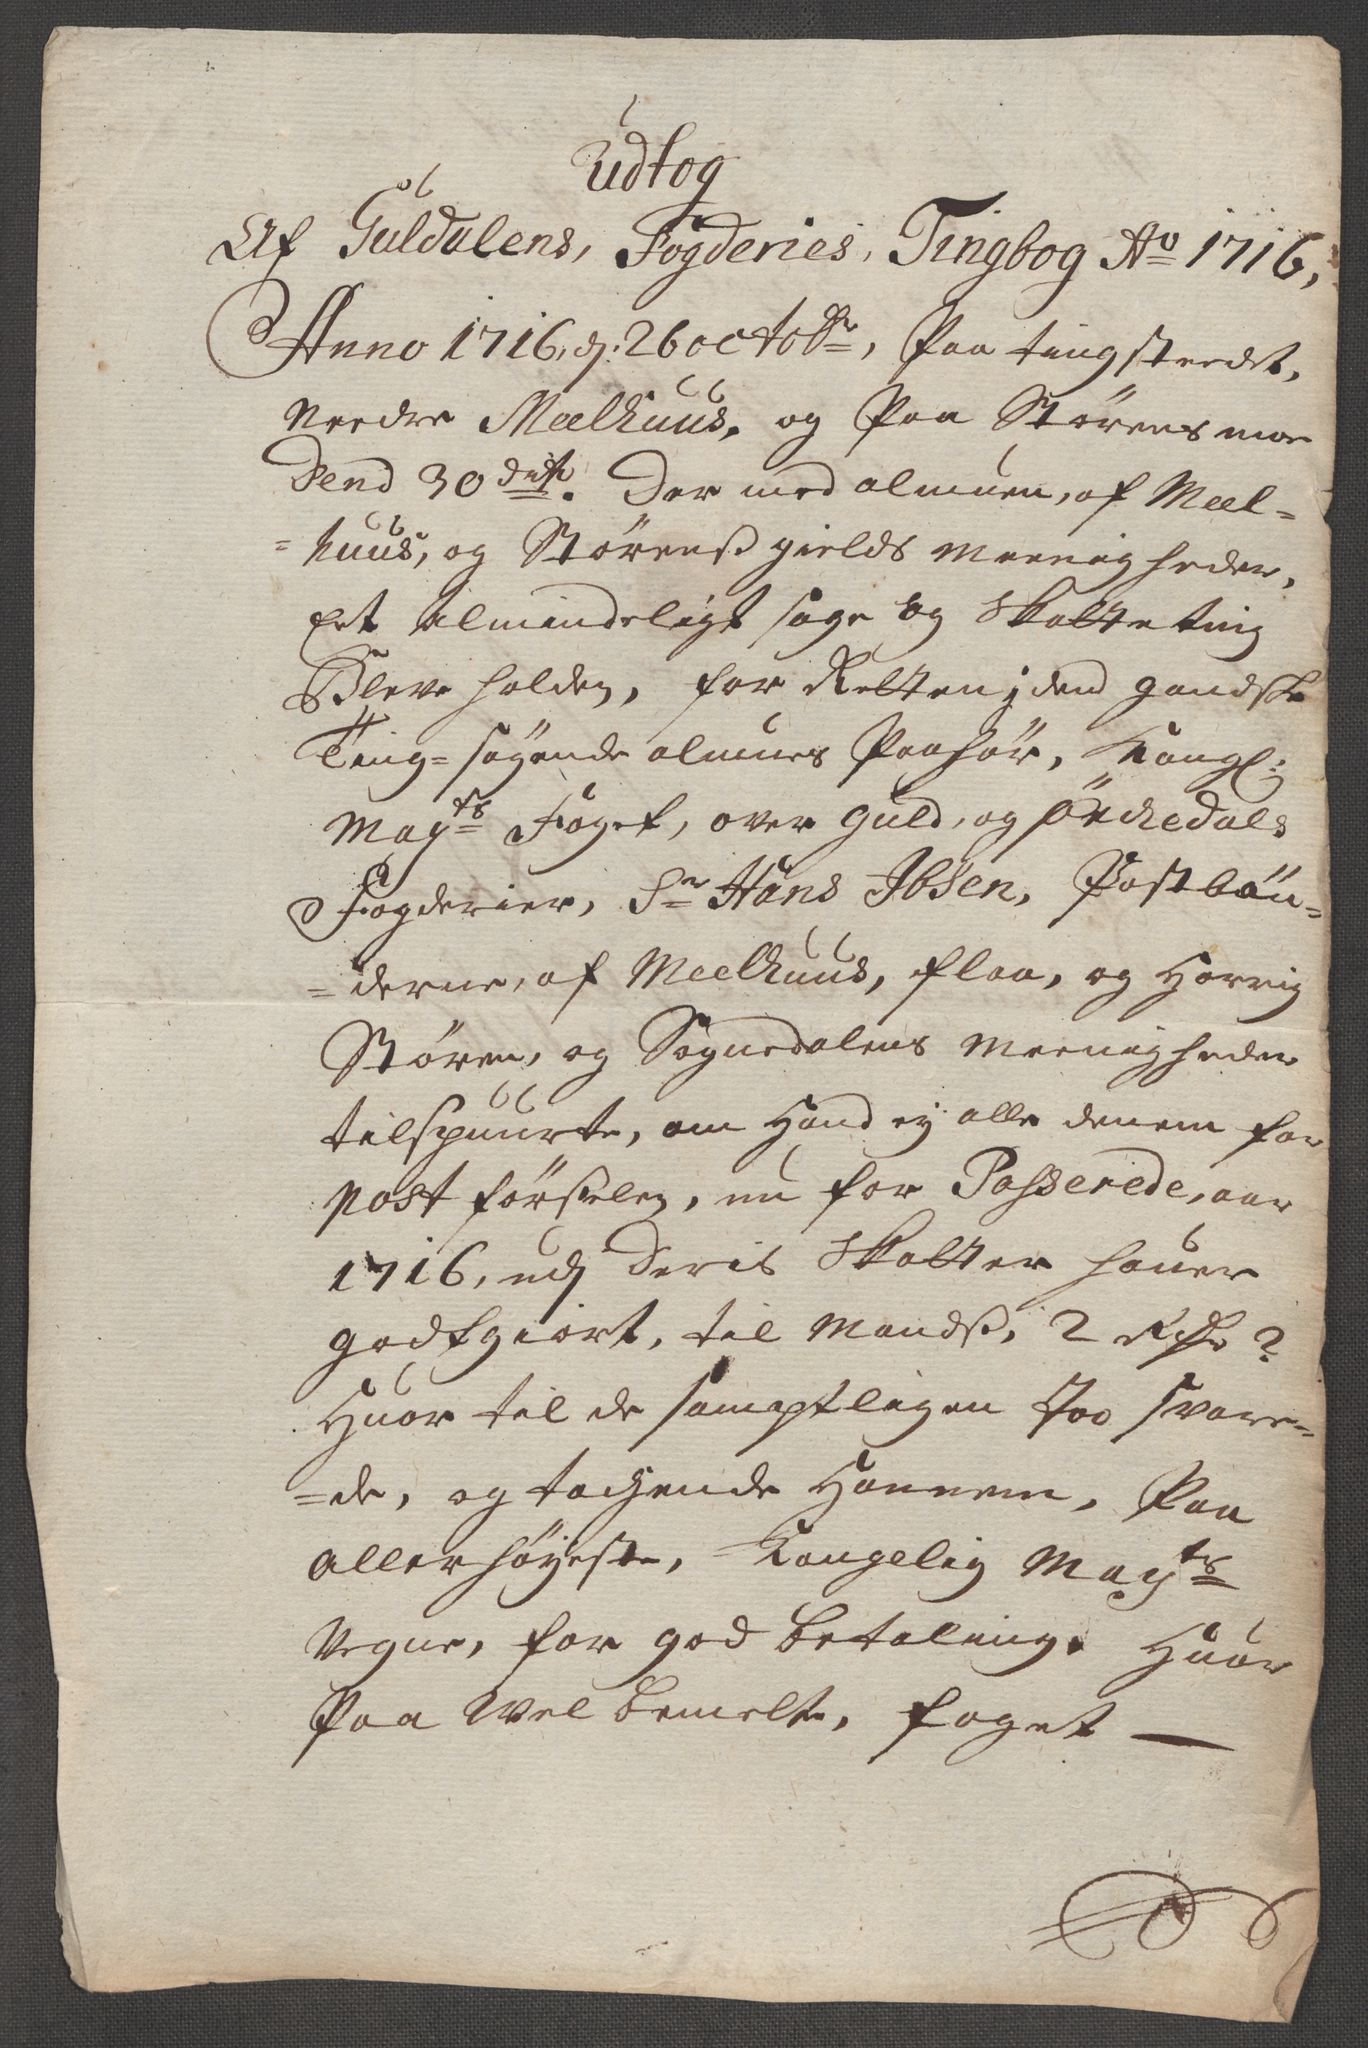 Udtog
Af Guldalens, Fogderies, Tingbog Ao 1716,
Anno 1716, d. 26 octobr, Paa tingstædet,
Nædre Meelhuus, og Paa Størens moe
Dend 30 dito. Der med almuen, af Meel-
-huus, og Størenß gields Meenigheder,
Eet almindeligt sage og Skatte ting
Bleve holden, for Retten j dend gandske
Ting-søgende almues Paahør, Kongl:
Mayts Foget, over Guld, og Örckedals
Fogderier, Sr Hans Jbsen, Postbøn-
-derne, af Meelhuus, flaa, og Horrig
Støren, og Sognedalens Meenigheder
tilspuurte, om Hand ej alle dennem for
Post førselen, nu for Passerede, aar
1716, udj deris Skatter hauer
godtgiort, til Mandß, 2 Rdr ?
Huor til de samptligen Joe svare-
-de, og tachende Hannem, Paa
allerhøyeste, Kongelig Mayts
Vegne, for god betaling. Huor
Paa Velbemelte, foget —